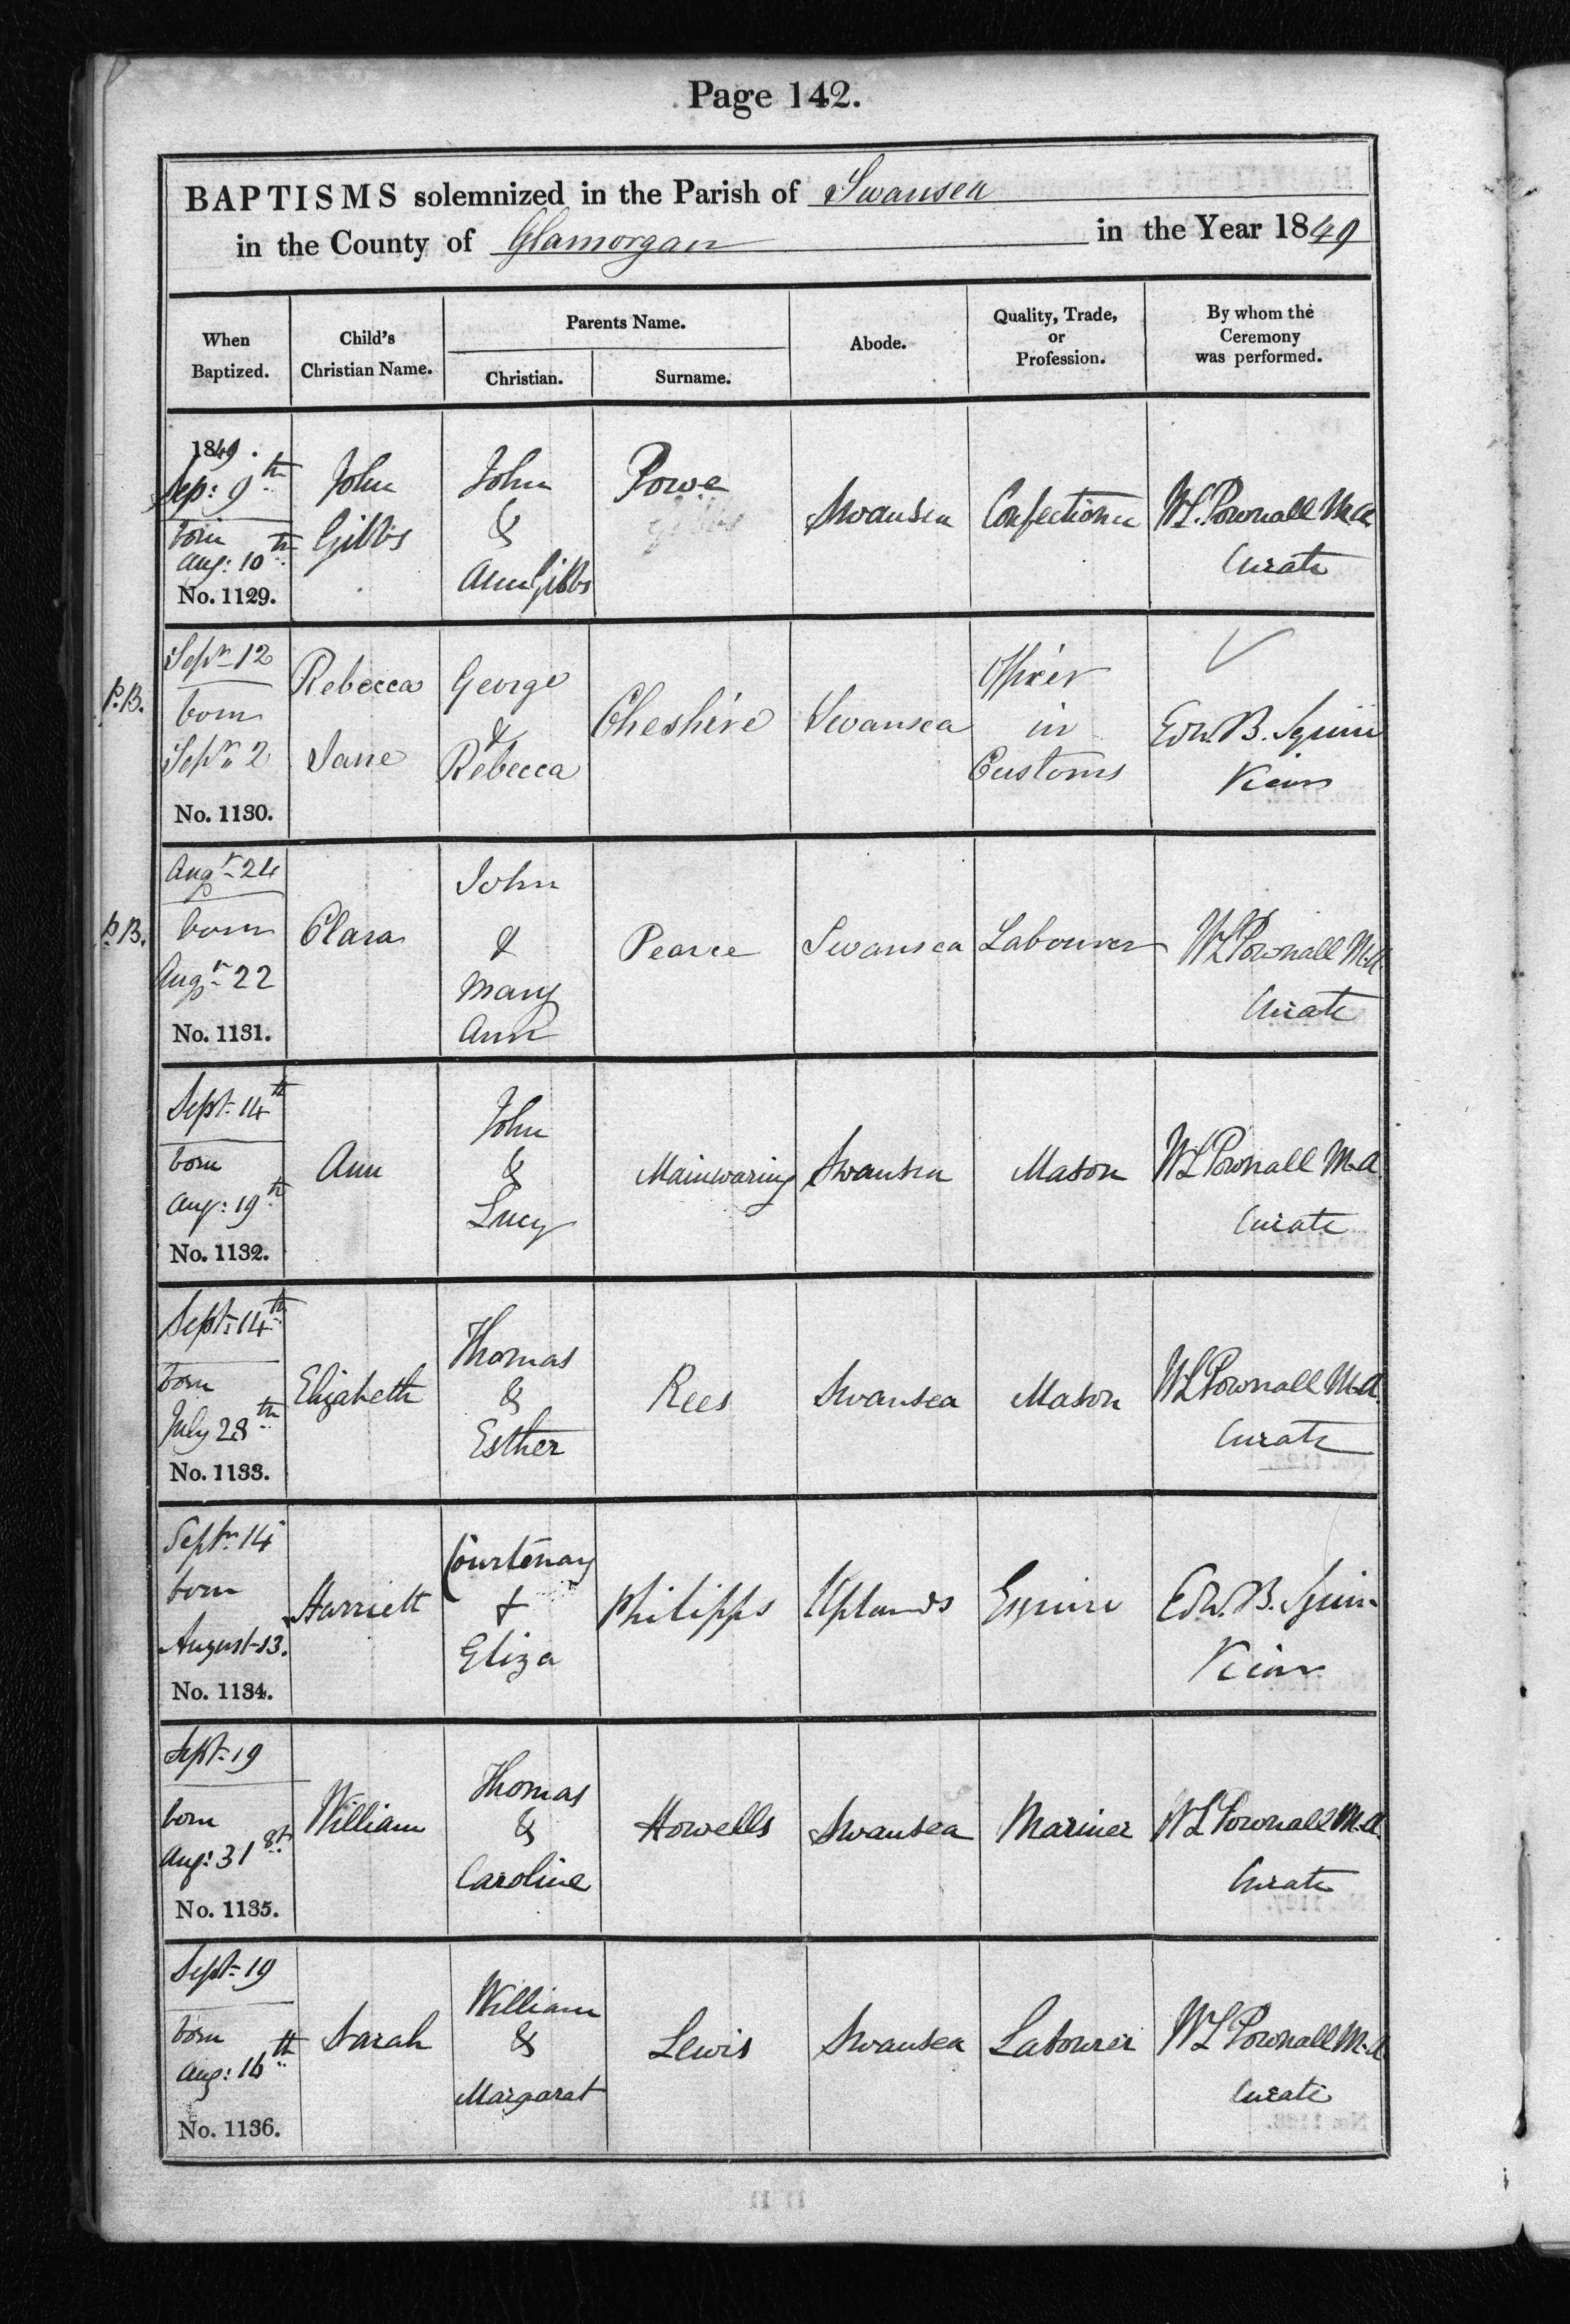 Page 142.
BAPTISMS solemnized in the Parish of Swansea
in the County of Glamorgan in the Year 1849
When Baptized.
Child's Christian Name.
Parents Name.
Christian.
Surname.
Abode.
Quality, Trade, or Profession.
By whom the Ceremony was performed.
1849.
Sep: 9th
born
Aug: 10th
No. 1129.
John
Gibbs
John
&
Ann Gibbs
Powe
Swansea
Confectioner
W L. Pownall M.A
Curate
P.B.
Septr 12
born
Septr 2
No. 1130.
Rebecca
Jane
George
&
Rebecca
Cheshire
Swansea
Officer
in
Customs
Edw. B. Squire
Vicar
P.B.
Augr 24
born
Augr 22
No. 1131.
Clara
John
&
Mary
Ann
Pearce
Swansea
Labourer
W L Pownall M.A.
Curate
Sept. 14th
born
Aug: 19th
No. 1132.
Ann
John
&
Lucy
Mainwaring
Swansea
Mason
W L Pownall M.A
Curate
Sept. 14th
born
July 28th
No. 1133.
Elizabeth
Thomas
&
Esther
Rees
Swansea
Mason
W L Pownall M.A.
Curate
Septr 14
born
August 13.
No. 1134.
Harriett
Courtenay
+
Eliza
Philipps
Uplands
Esquire
Edw. B. Squire
Vicar
Sept. 19
born
Aug: 31st
No. 1135.
William
Thomas
&
Caroline
Howells
Swansea
Mariner
W L Pownall M.A.
Curate
Sept. 19
born
Aug: 16th
No. 1136.
Sarah
William
&
Margaret
Lewis
Swansea
Labourer
W L Pownall M.A
Curate